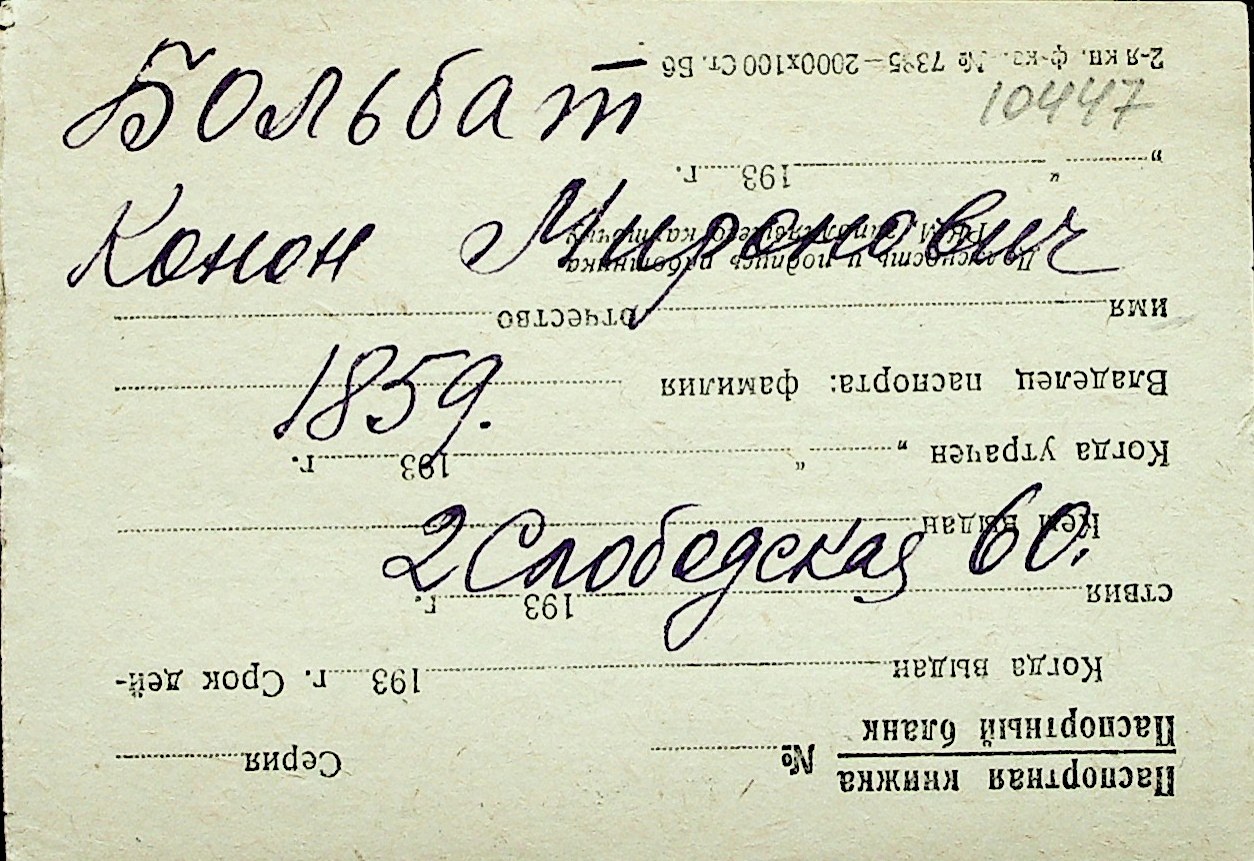 Больбат
Конон Миронович
1859.
2 Слободская 60.
10447
Паспортная книжка
Паспортный бланк
№ Серия
Когда выдан 193 г. Срок дей-
ствия 193 г.
Кем выдан
Когда утрачен „ “ 193 г.
Владелец паспорта: фамилия
имя отчество
Должность и подпись работника
РКМ, заполнявшего карточку
„ “ 193 г.
2-я кн. ф-ка. № 7395—2000х100 Ст. Б6